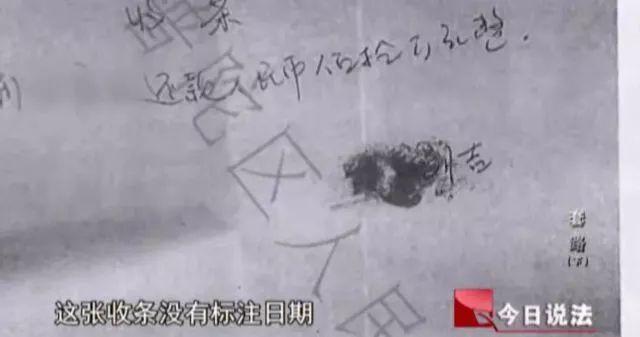 收条
还款人民币 拾万元整.
吉
区人民
套路
(下)
这张收条没有标注日期
今日说法